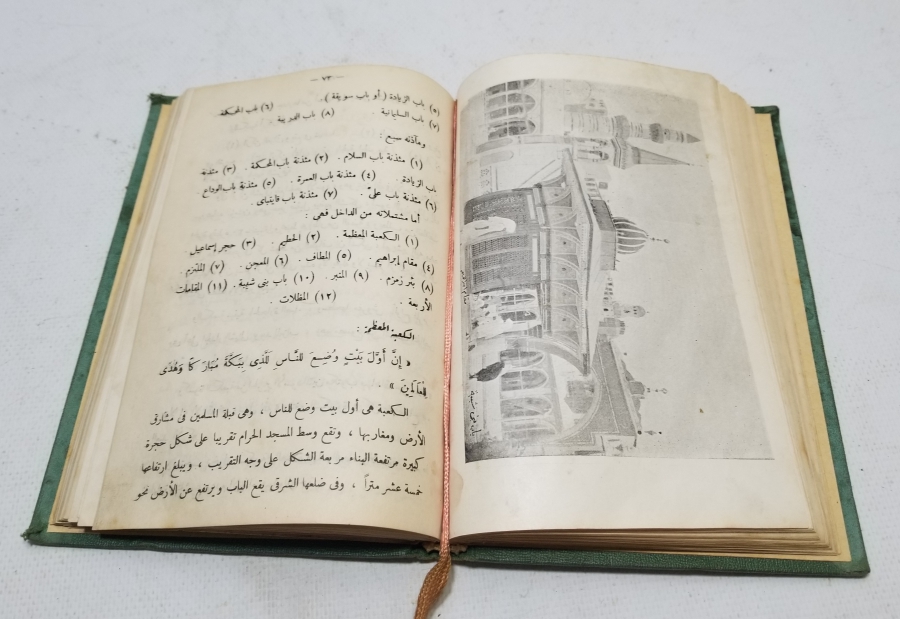 — ٧٣ —
(٥) باب الزيادة (أو باب سويقة). (٦) باب المحكمة
(٧) باب السليمانية (٨) باب الدريبة.
ومآذنه سبع :
(١) مئذنة باب السلام . (٢) مئذنة باب المحكمة . (٣) مئذنة
باب الزيادة . (٤) مئذنة باب العمرة . (٥) مئذنة باب الوداع
(٦) مئذنة باب علىّ . (٧) مئذنة باب قايتباى .
أما مشتملاته من الداخل فهى :
(١) الكعبة المعظمة . (٢) الحطيم . (٣) حجر إسماعيل
(٤) مقام إبراهيم . (٥) المطاف . (٦) المعجن . (٧) الملتزم .
(٨) بئر زمزم . (٩) المنبر . (١٠) باب بنى شيبة . (١١) المقامات
الأربعة . (١٢) المظلات .
الكعبة المعظمة :
« إِنَّ أَوَّلَ بَيْتٍ وُضِعَ لِلنَّاسِ لَلَّذِى بِبَكَّةَ مُبَارَكًا وَهُدًى
لِلْعَالَمِينَ » .
الكعبة هى أول بيت وضع للناس ، وهى قبلة المسلمين فى مشارق
الأرض ومغاربها ، وتقع وسط المسجد الحرام تقريبا على شكل حجرة
كبيرة مرتفعة البناء مربعة الشكل على وجه التقريب ، ويبلغ ارتفاعها
خمسة عشر متراً ، وفى ضلعها الشرقى يقع الباب ويرتفع عن الأرض نحو
باب بنى شيبة